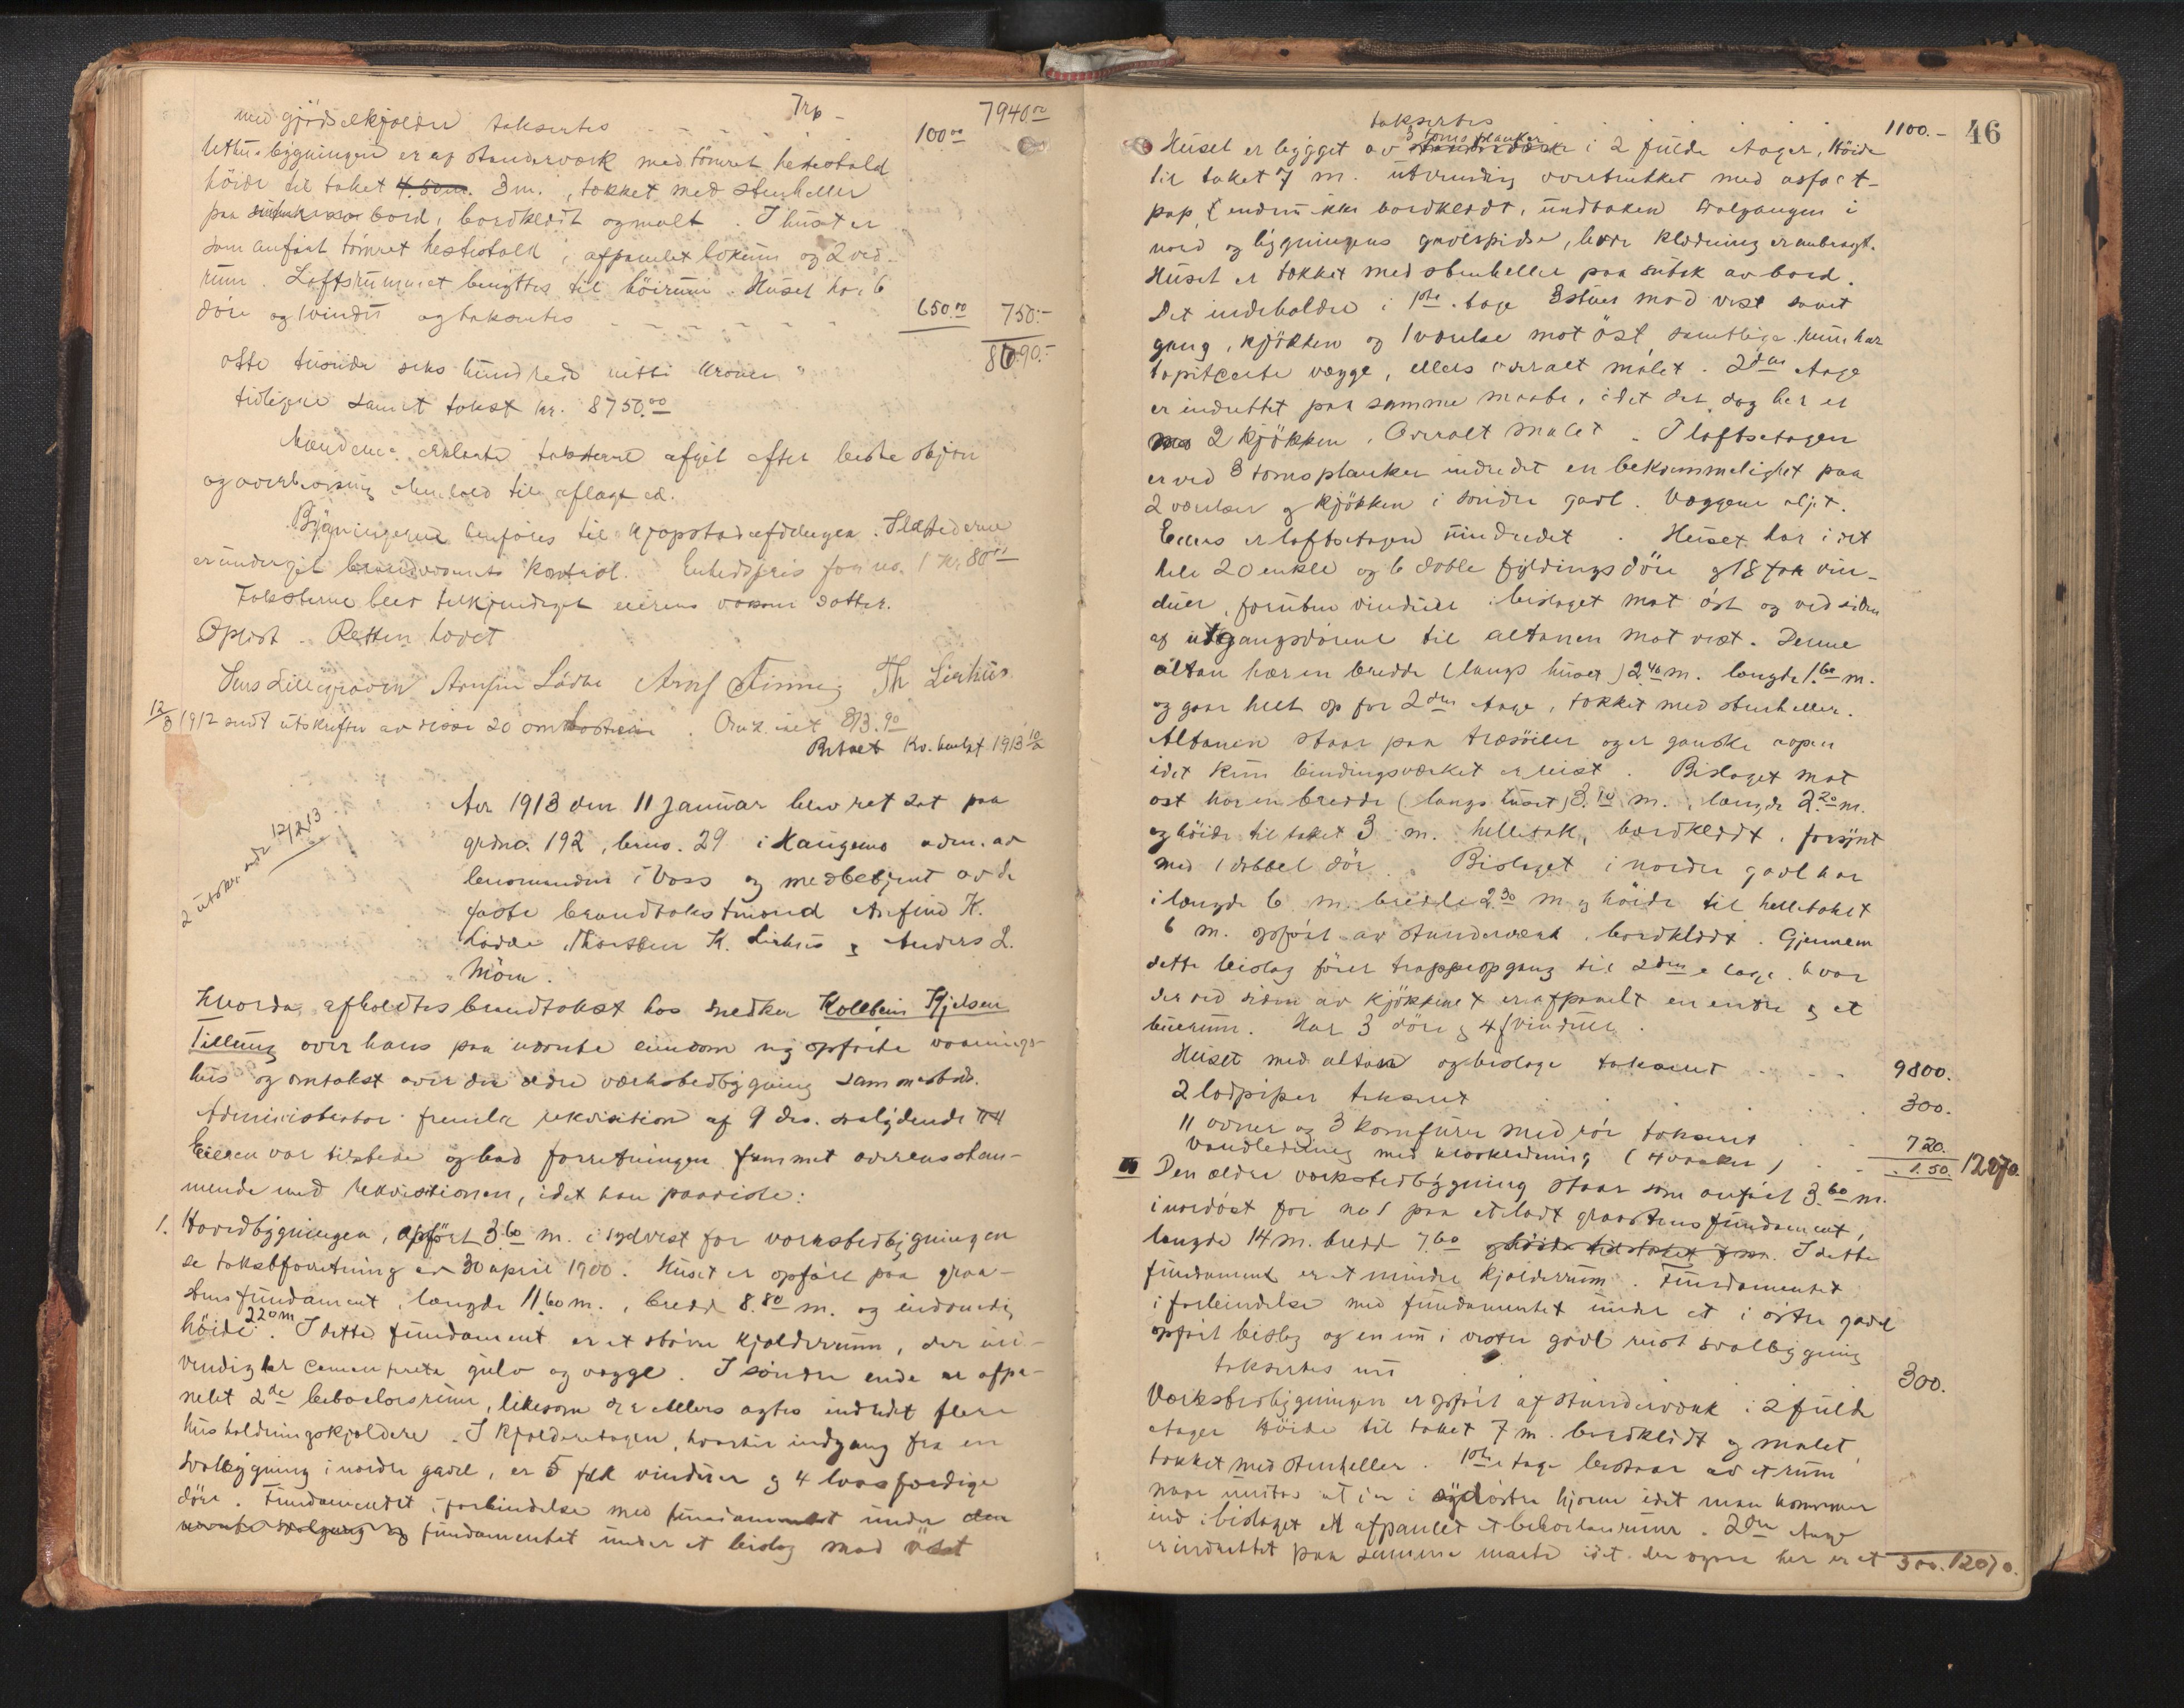 Trp - 7940.00
med gjödselkjelder taksertes - - - - 100.00
Uthusbygningen er af standerværk med tömret hestestald
höide til taket 4.50 m. 3 m., tækket med stenheller
paa bord, bordklædt og malt. I huset er
som anfört tömret hestestald, afpanelet lokum og 2 ved-
rum. Loftsrummet benyttes til höirum. Huset har 6
döre og 1 vindu og taksertes - - - - - - 650.00 750.-
8690.-
otte tusinde seks hundrede nitti kroner"
tidligere samlet takst kr. 8750.00
Mændene erklærte taksterne afgit efter bedste skjön
og overbevisning i henhold til aflagt ed.
Bygningerne henföres til kjöpstadafdelingen. Ildstederne
er undergit brandvæsenets kontrol. Enhedspris for no. 1 kr. 80.00
Taksterne blev tilkjendegit eierens voksne datter.
Oplæst. Retten hævet
Jens Lillegraven Arnfin Lödve Arnf Finne Th Lirhus
12/3 1912 sendt utskrifter av disse 20 omkostnin. Omk. ialt 813.90
Betalt Kv. 1913 10/2
2 utskr. sendt 12/2 13
Aar 1913 den 11 januar blev ret sat paa
grdno. 192, brno. 29 i Haugemo adm. av
lensmanden i Voss og medbetjent av de
faste brandtakstmænd Arnfind K.
Lödve, Thorstein K. Lirhus og Anders L.
Möen.
Hvorda afholdtes brandtakst hos snedker Kolbein Kjelsen
Tillung over hans paa nævnte eiendom nyopförte vaanings-
hus og omtakst over den ældre verkstedbygning sammesteds.
Administrator fremla rekvisition af 9 ds. saalydende
Eieren var tilstede og bad forretningen fremmet overensstem-
mende med rekvisitionen, idet han paaviste:
1. Hovedbygningen, opfört 3.60 m. i sydvest for verkstedbygningen
se takstforretning av 30 april 1900. Huset er opfört paa graa-
stensfundament, længde 11.60 m., bredde 8.80 m. og indvendig
höide 220 m. I dette fundament er et större kjelderrum, der ind-
vendig har cementerete gulv og vægge. I söndre ende er afpa-
nelet 2de beboelsesrum, likesom der ellers agtes indredet flere
husholdningskjeldere. I kjelderetagen, hvortil indgang fra en
svalbygning i nordre gavl, er 5 fdk vinduer og 4 laasfærdige
döre. Fundamentet i forbindelse med fundamentet under den
nævnte svalgang og fundamentet under et bislag mod öst
46
taksertes 1100.-
Huset er bygget av standerværk 3 toms planker i 2 fulde etager, Höide
til taket 7 m. utvendig overtrukket med asfalt-
pap, endnu ikke bordklædt, undtaken svalgangen i
nord og bygningens gavlspidse, hvor klædning er anbragt.
Huset er tækket med stenheller paa sutak av bord.
Det indeholder i 1ste etage 3 stuer mod vest samt
gang, kjökken og 1 værelse mot öst samtlige rum har
tapitcerte vægge, ellers overalt malet. 2den etage
er indrettet paa samme maate, idet der dog her er
2 kjökken. Overalt malet. I loftsetagen
er ved 3 toms planker indredet en bekvemmelighet paa
2 værelser og kjökken i söndre gavl. Væggene oljet.
Ellers er loftsetagen uindredet. Huset har i det
hele 20 enkle og 6 doble fyldingsdöre og 18 fdk vin-
duer, foruten vinduer i bislaget mot öst og ved siden
af utgangsdörene til altanen mot vest. Denne
altan har en bredde (langs huset) 2.40 m. længde 1.60 m.
og gaar helt op for 2den etage, tækket med stenheller.
Altanen staar paa træsöiler og er ganske aapen
idet kun bindingsverket er reist. Bislaget mot
öst har en bredde (langs huset) 3.10 m., længde 2.20 m.
og höide til taket 3 m. helletak, bordklædt, forsynt
med 1 dobbel dör. Bislaget i nordre gavl har
i længde 6 m. bredde 2.30 m og höide til helletaket
6 m. opfört av standerverk, bordklædt. Gjennem
dette bislag förer trappeopgang til 2den etage, hvor
der ved siden av kjökkenet er afpanelt en entre og et
burum. Har 3 döre og 4 f vinduer.
Huset med altan og bislage taksert - - - 9800.
2 lodpiper taksert . . . . 300.
11 ovner og 3 komfurer med rör taksert - - 720.
Vandledning med kloakledning (4 vasker) - - 1.50. 12070.
II Den ældre verkstedbygning staar som anfört 3.60 m.
i nordöst for no 1 paa et ladt graastensfundament,
længde 14 m. bredde 7.60 og höide til taket 7 m. I dette
fundament er et mindre kjelderrum. Fundamentet
i forbindelse med fundamentet under et i östre gavl
opfört bislag og en nu i vestre gavl reist svalbygning
taksertes nu 300.
Verkstedbygningen er opfört af standerværk i 2 fulde
etager Höide til taket 7 m. bordklædt og malet,
tækket med stenheller. 1ste etage bestaar av et rum
naar undtas at der i sydöstre hjörne idet man kommer
ind i bislaget er afpanelet et beboelsesrum. 2den etage
er indrettet paa samme maate idet der ogsaa her er et 300. 12070.